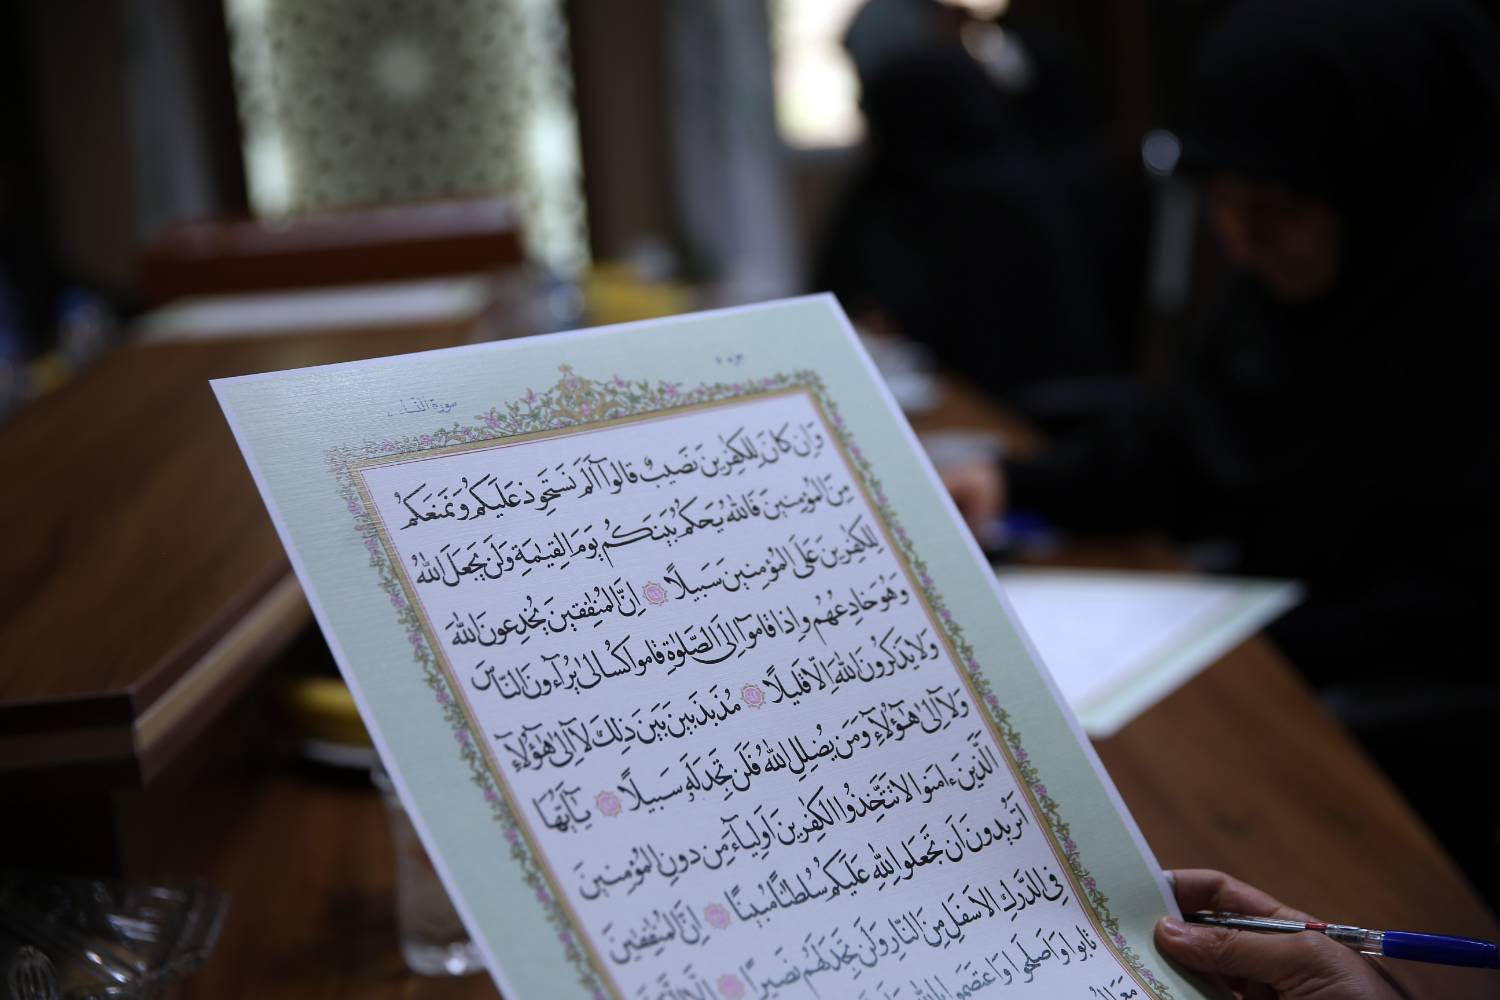 سورة النساء
جزء ٥
وَإِن كَانَ لِلْكٰفِرِينَ نَصِيبٌ قَالُوٓا أَلَمْ نَسْتَحْوِذْ عَلَيْكُمْ وَنَمْنَعْكُمْ
مِنَ الْمُؤْمِنِينَ فَاللّٰهُ يَحْكُمُ بَيْنَكُمْ يَوْمَ الْقِيٰمَةِ وَلَنْ يَجْعَلَ اللّٰهُ
لِلْكٰفِرِينَ عَلَى الْمُؤْمِنِينَ سَبِيلًا ۝ إِنَّ الْمُنٰفِقِينَ يُخٰدِعُونَ اللّٰهَ
وَهُوَ خَادِعُهُمْ وَإِذَا قَامُوٓا إِلَى الصَّلٰوةِ قَامُوا كُسَالىٰ يُرَآءُونَ النَّاسَ
وَلَا يَذْكُرُونَ اللّٰهَ إِلَّا قَلِيلًا ۝ مُذَبْذَبِينَ بَيْنَ ذٰلِكَ لَآ إِلىٰ هٰٓؤُلَآءِ
وَلَآ إِلىٰ هٰٓؤُلَآءِ وَمَنْ يُضْلِلِ اللّٰهُ فَلَنْ تَجِدَ لَهُ سَبِيلًا ۝ يٰٓأَيُّهَا
الَّذِينَ ءَامَنُوا لَا تَتَّخِذُوا الْكٰفِرِينَ أَوْلِيَآءَ مِنْ دُونِ الْمُؤْمِنِينَ
أَتُرِيدُونَ أَنْ تَجْعَلُوا لِلّٰهِ عَلَيْكُمْ سُلْطٰنًا مُبِينًا ۝ إِنَّ الْمُنٰفِقِينَ
فِى الدَّرْكِ الْأَسْفَلِ مِنَ النَّارِ وَلَنْ تَجِدَ لَهُمْ نَصِيرًا ۝ إِلَّا الَّذِينَ
تَابُوا وَأَصْلَحُوا وَاعْتَصَمُوا بِاللّٰهِ